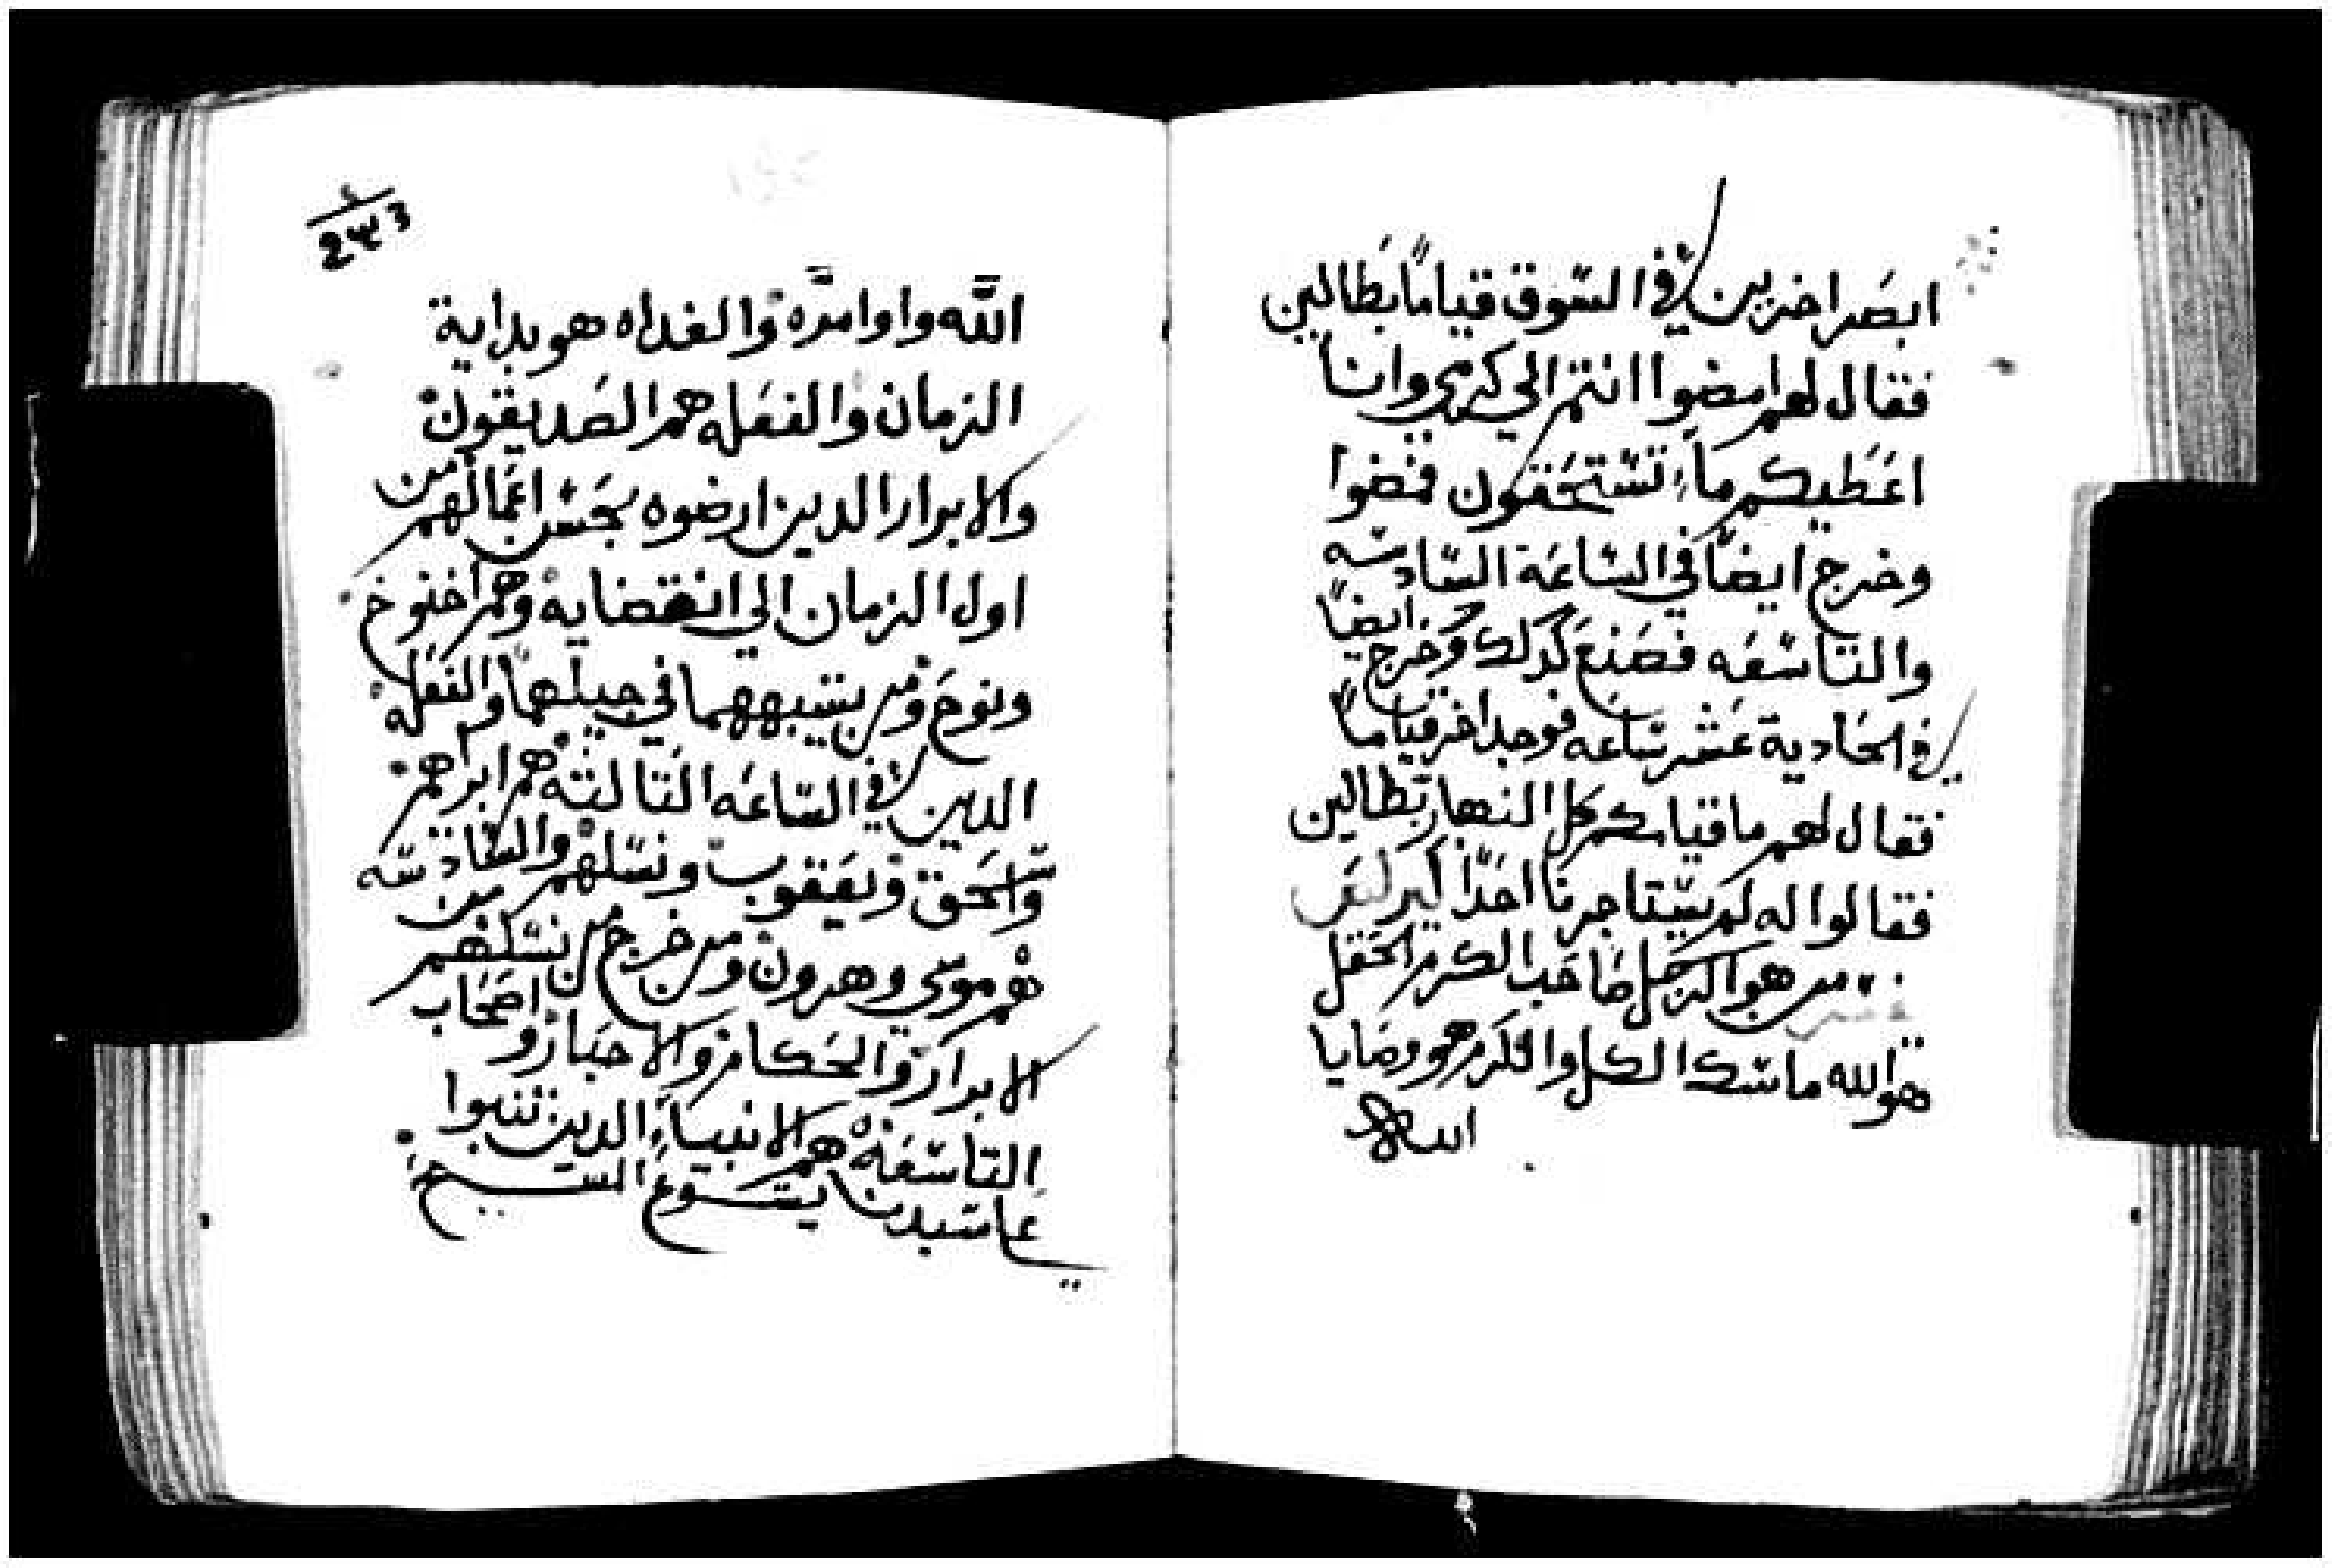 ابصر اخرين في السوق قياماً بطالين
فقال لهم امضوا انتم الي كرمي وانا
اعطيكم ما تستحقون فمضوا
وخرج ايضاً في الساعة السادسه
والتاسعه فصنع كدلك وخرج ايضاً
في الحادية عشر ساعه فوجد اخر قياماً
فقال لهم ما قيامكم كل النهار بطالين
فقالوا له لم يستاجرنا احداً
من هو الرجل صاحب الكرم الحقل
هو الله ماسك الكل والكرم هو وصايا
الله
243
الله واوامره والغداه هو بداية
الزمان والفعله هم الصديقون
والابرار الدين ارضوه بحسن اعمالهم من
اول الزمان الي انقضايه وهم اخنوخ
ونوح ومن يشبههما في جيلهما والفعله
الدين في الساعه التالته هم ابراهم
واسحق ويعقوب ونسلهم والسادسه
هم موسي وهرون ومن خرج من نسلهم من
الابرار والحكام والاحبار واصحاب
التاسعه هم الانبياء الدين تنبوا
علي سيدنا يسوع المسيح